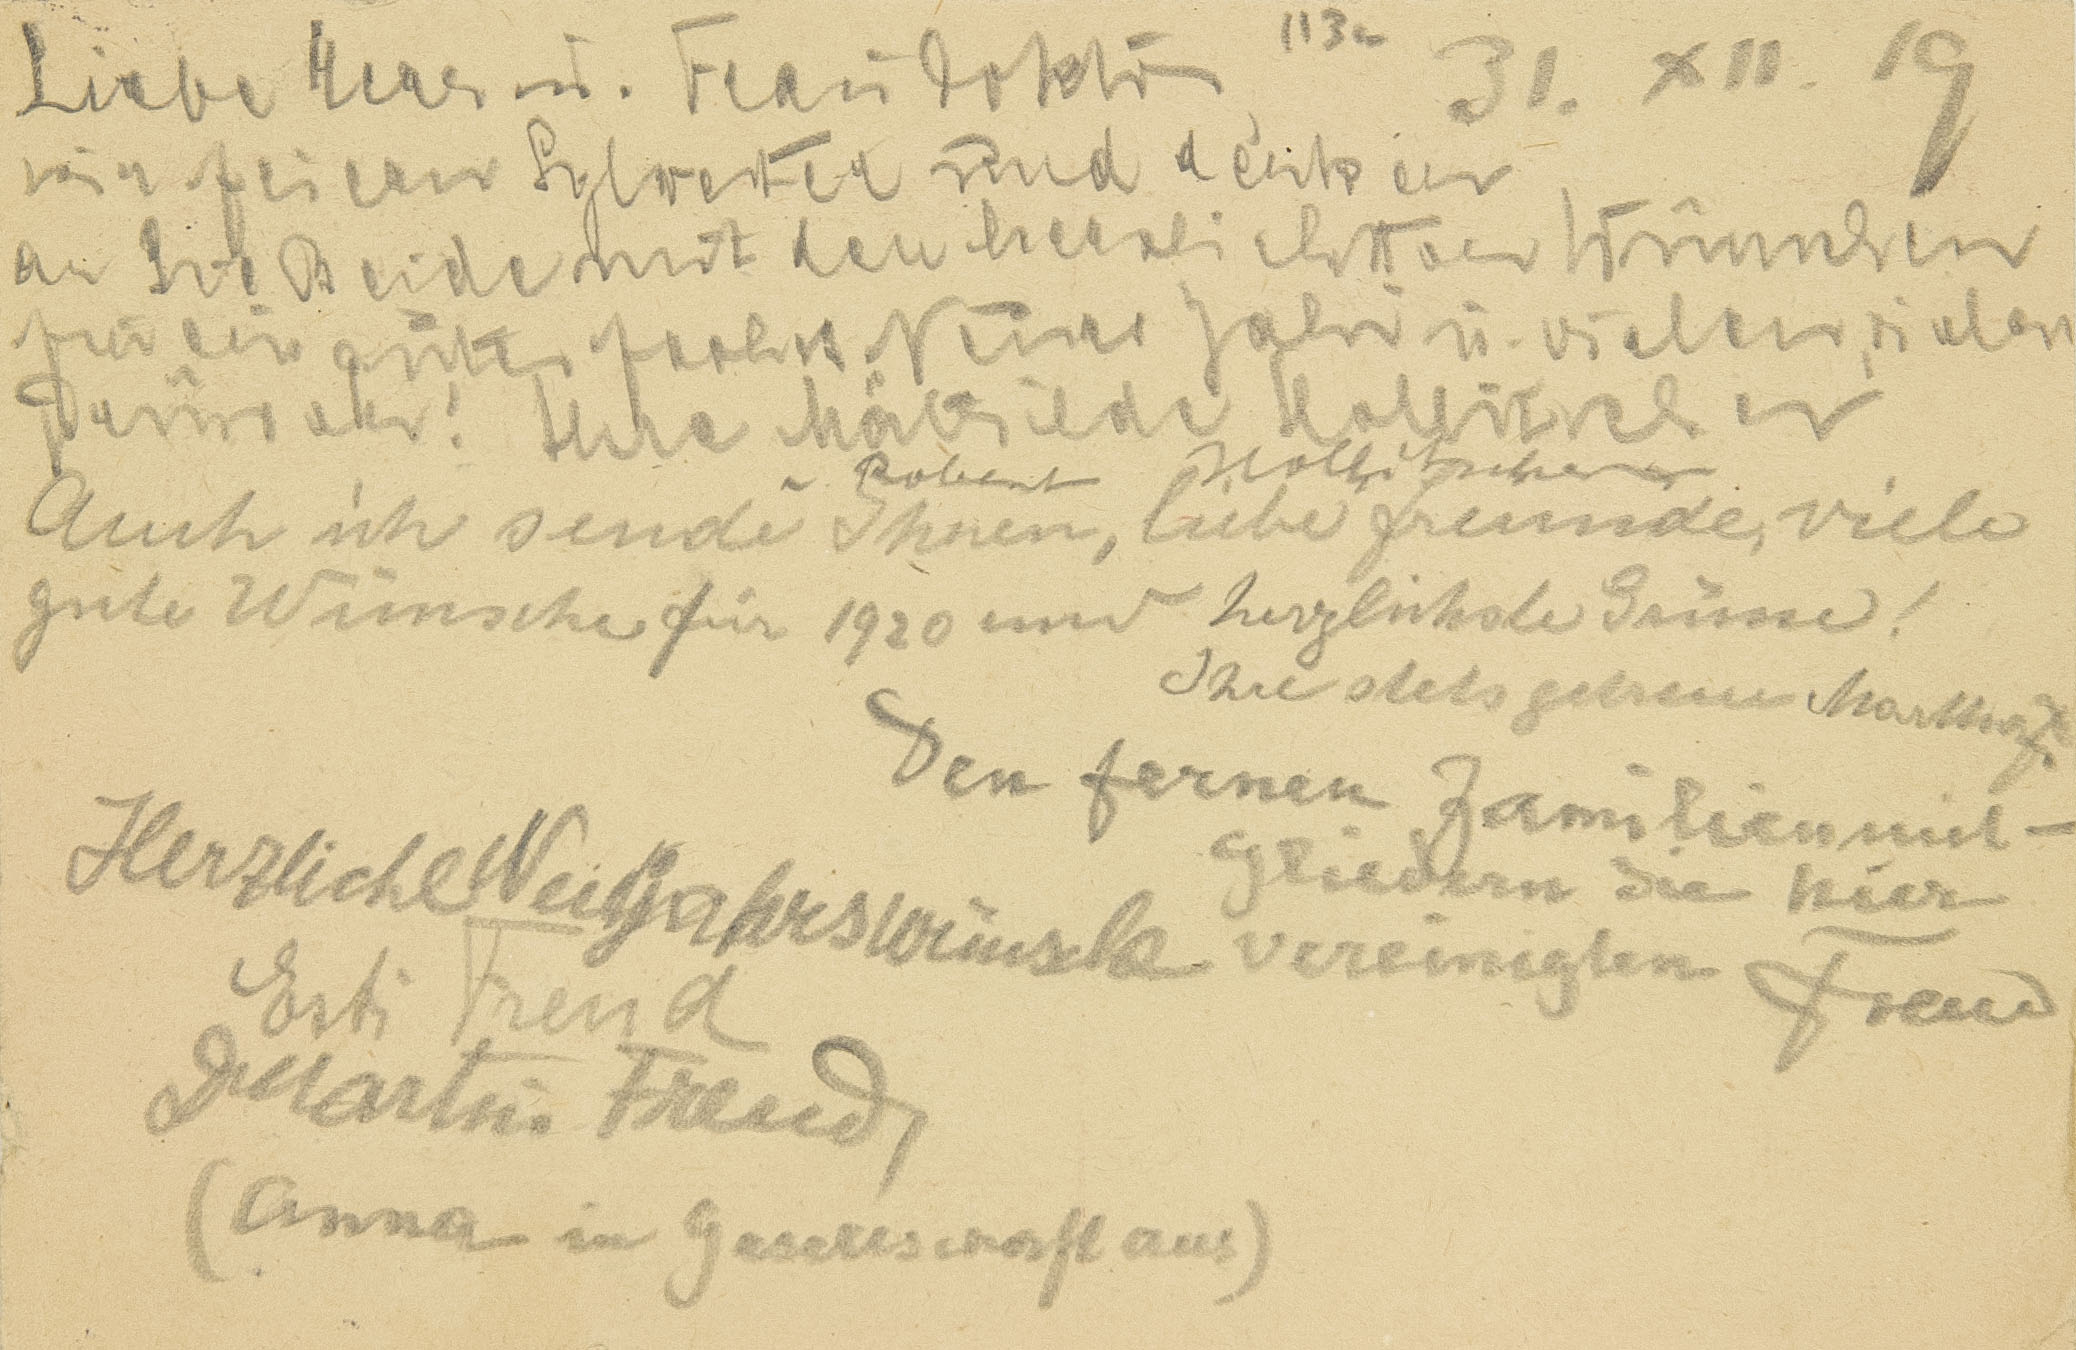 Liebe Herr u. Frau Doktor, 113a 31. XII. 19
wir feiern Sylvester und denken
an Sie Beide mit den herzlichsten Wünschen
für ein gutes frohes Neues Jahr u. vielen, vielen
Ihre Mathilde Hollitscher
Robert Hollitscher
Auch ich sende Ihnen, liebe Freunde, viele
gute Wünsche für 1920 und herzlichste Grüsse!
Ihre stets getreue Martha
Den fernen Familienmit-
gliedern die hier
vereinigten Freud
Herzliche Neujahrswünsche
Esti Freud
Martin Freud,
(Anna in Gesellschaft aus)